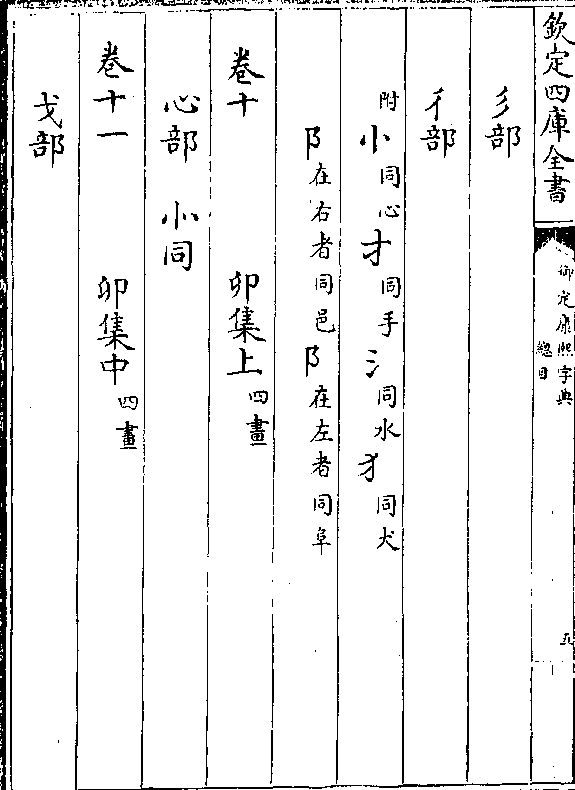 欽定四庫全書
御定康熙字典
總目
五
彡部
彳部
附 㣺同心扌同手氵同水犭同犬
阝在右者同邑阝在左者同阜
卷十 卯集上四畫
心部 㣺同
卷十一 卯集中四畫
戈部